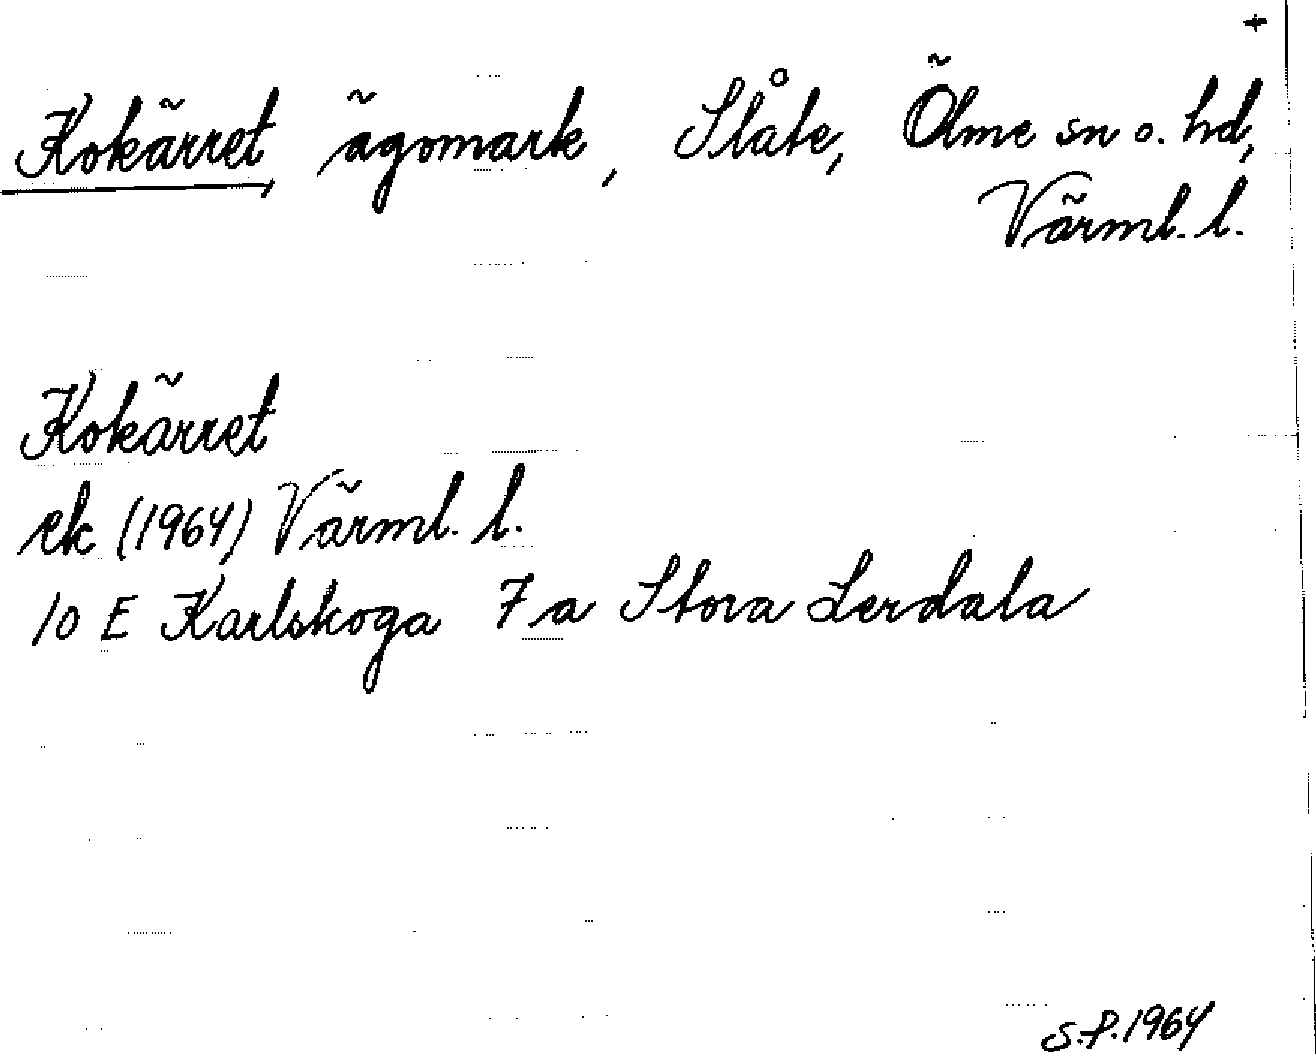 +
Kokärret, ägomark, Slåte, Ölme sn o. hd,
Värml. l.
Kokärret
ek (1964) Värml. l.
10 E Karlskoga 7a Stora Lerdala
S.P. 1964